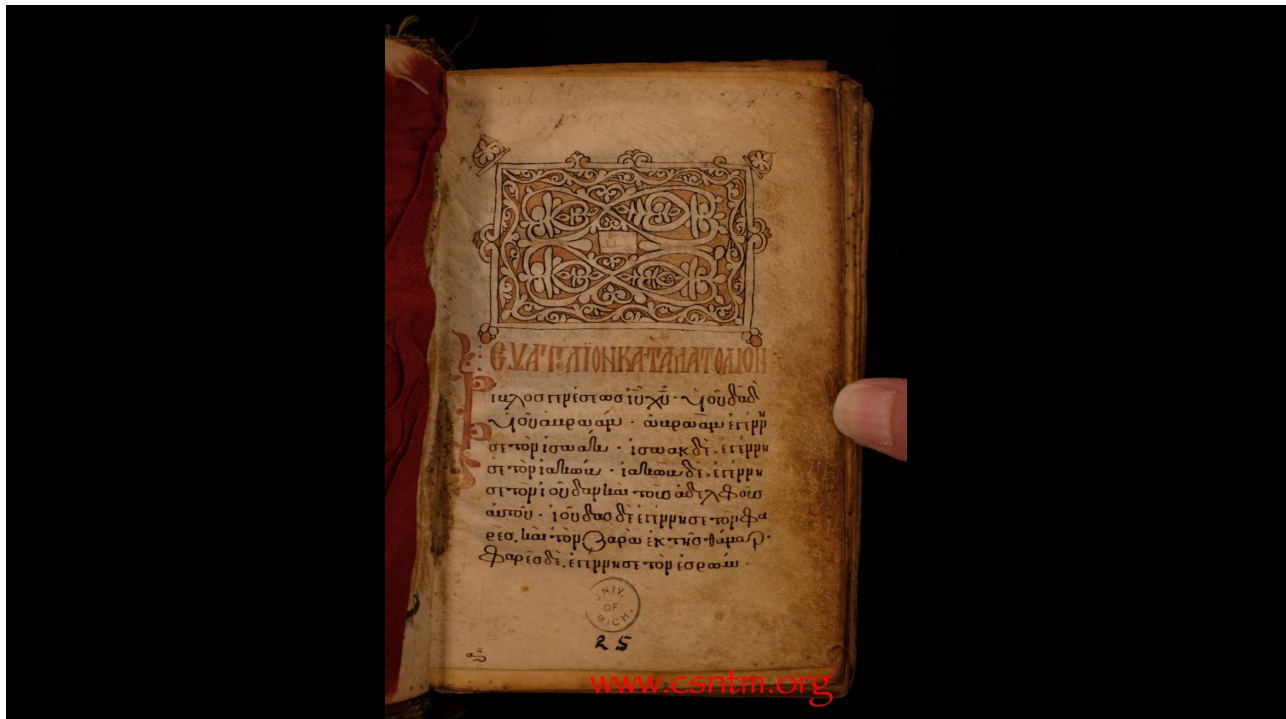 ΕΥΑΓΓΛΙΟΝ ΚΑΤΑ ΜΑΤΘΑΙΟΝ
Βίβλος γενέσεως ιυ χυ · υἱοῦ δαδ
υἱοῦ ἀβραάμ · ἀβραὰμ ἐγέννη
σε τὸν ἰσαάκ · ἰσαὰκ δὲ, ἐγέννη
σε τὸν ἰακώβ · ἰακὼβ δὲ, ἐγέννη
σε τὸν ἰούδαν καὶ τοὺς ἀδελφοὺς
αὐτοῦ · ἰούδας δὲ ἐγέννησε τὸν φα
ρὲς, καὶ τὸν ζαρὰ ἐκ τῆς θάμαρ ·
φαρὲς δὲ, ἐγέννησε τὸν ἐσρώμ ·
UNIV.
OF
MICH.
25
www.csntm.org